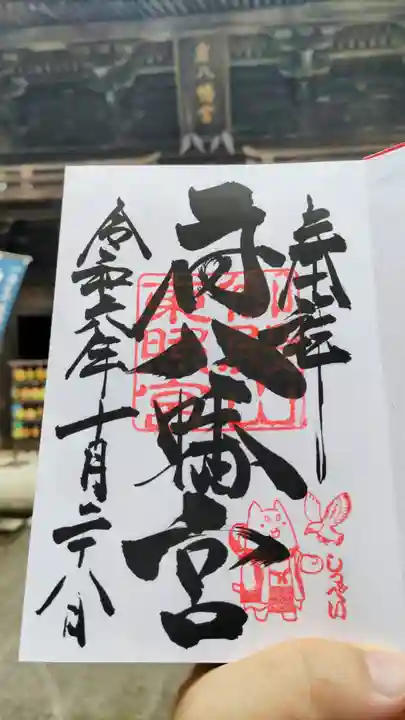 府八幡宮
奉拝
府八幡宮
東照宮
令和六年十月二十八日